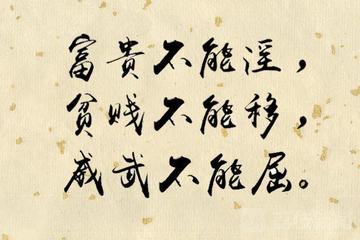 富貴不能淫，
貧贱不能移，
威武不能屈。